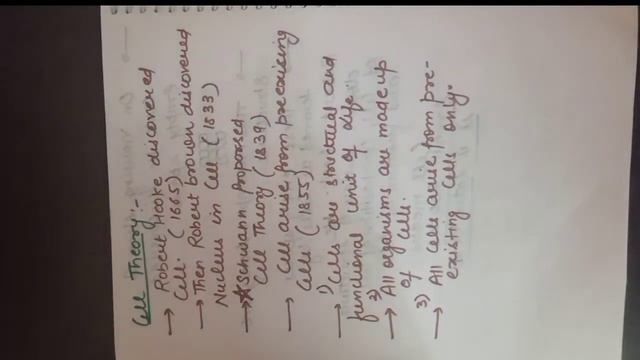 Cell Theory :-
→ Robert Hooke discovered
Cell. (1665)
→ Then Robert brown discovered
Nucleus in Cell (1833)
→ ★Schwann Proposed
Cell Theory (1839)
→ Cell arise from preexising
Cells (1855)
→ 1) Cells are structural and
functional unit of Life.
→ 2) All organisms are made up
of cell.
→ 3) All cells arise from pre-
existing cells only.